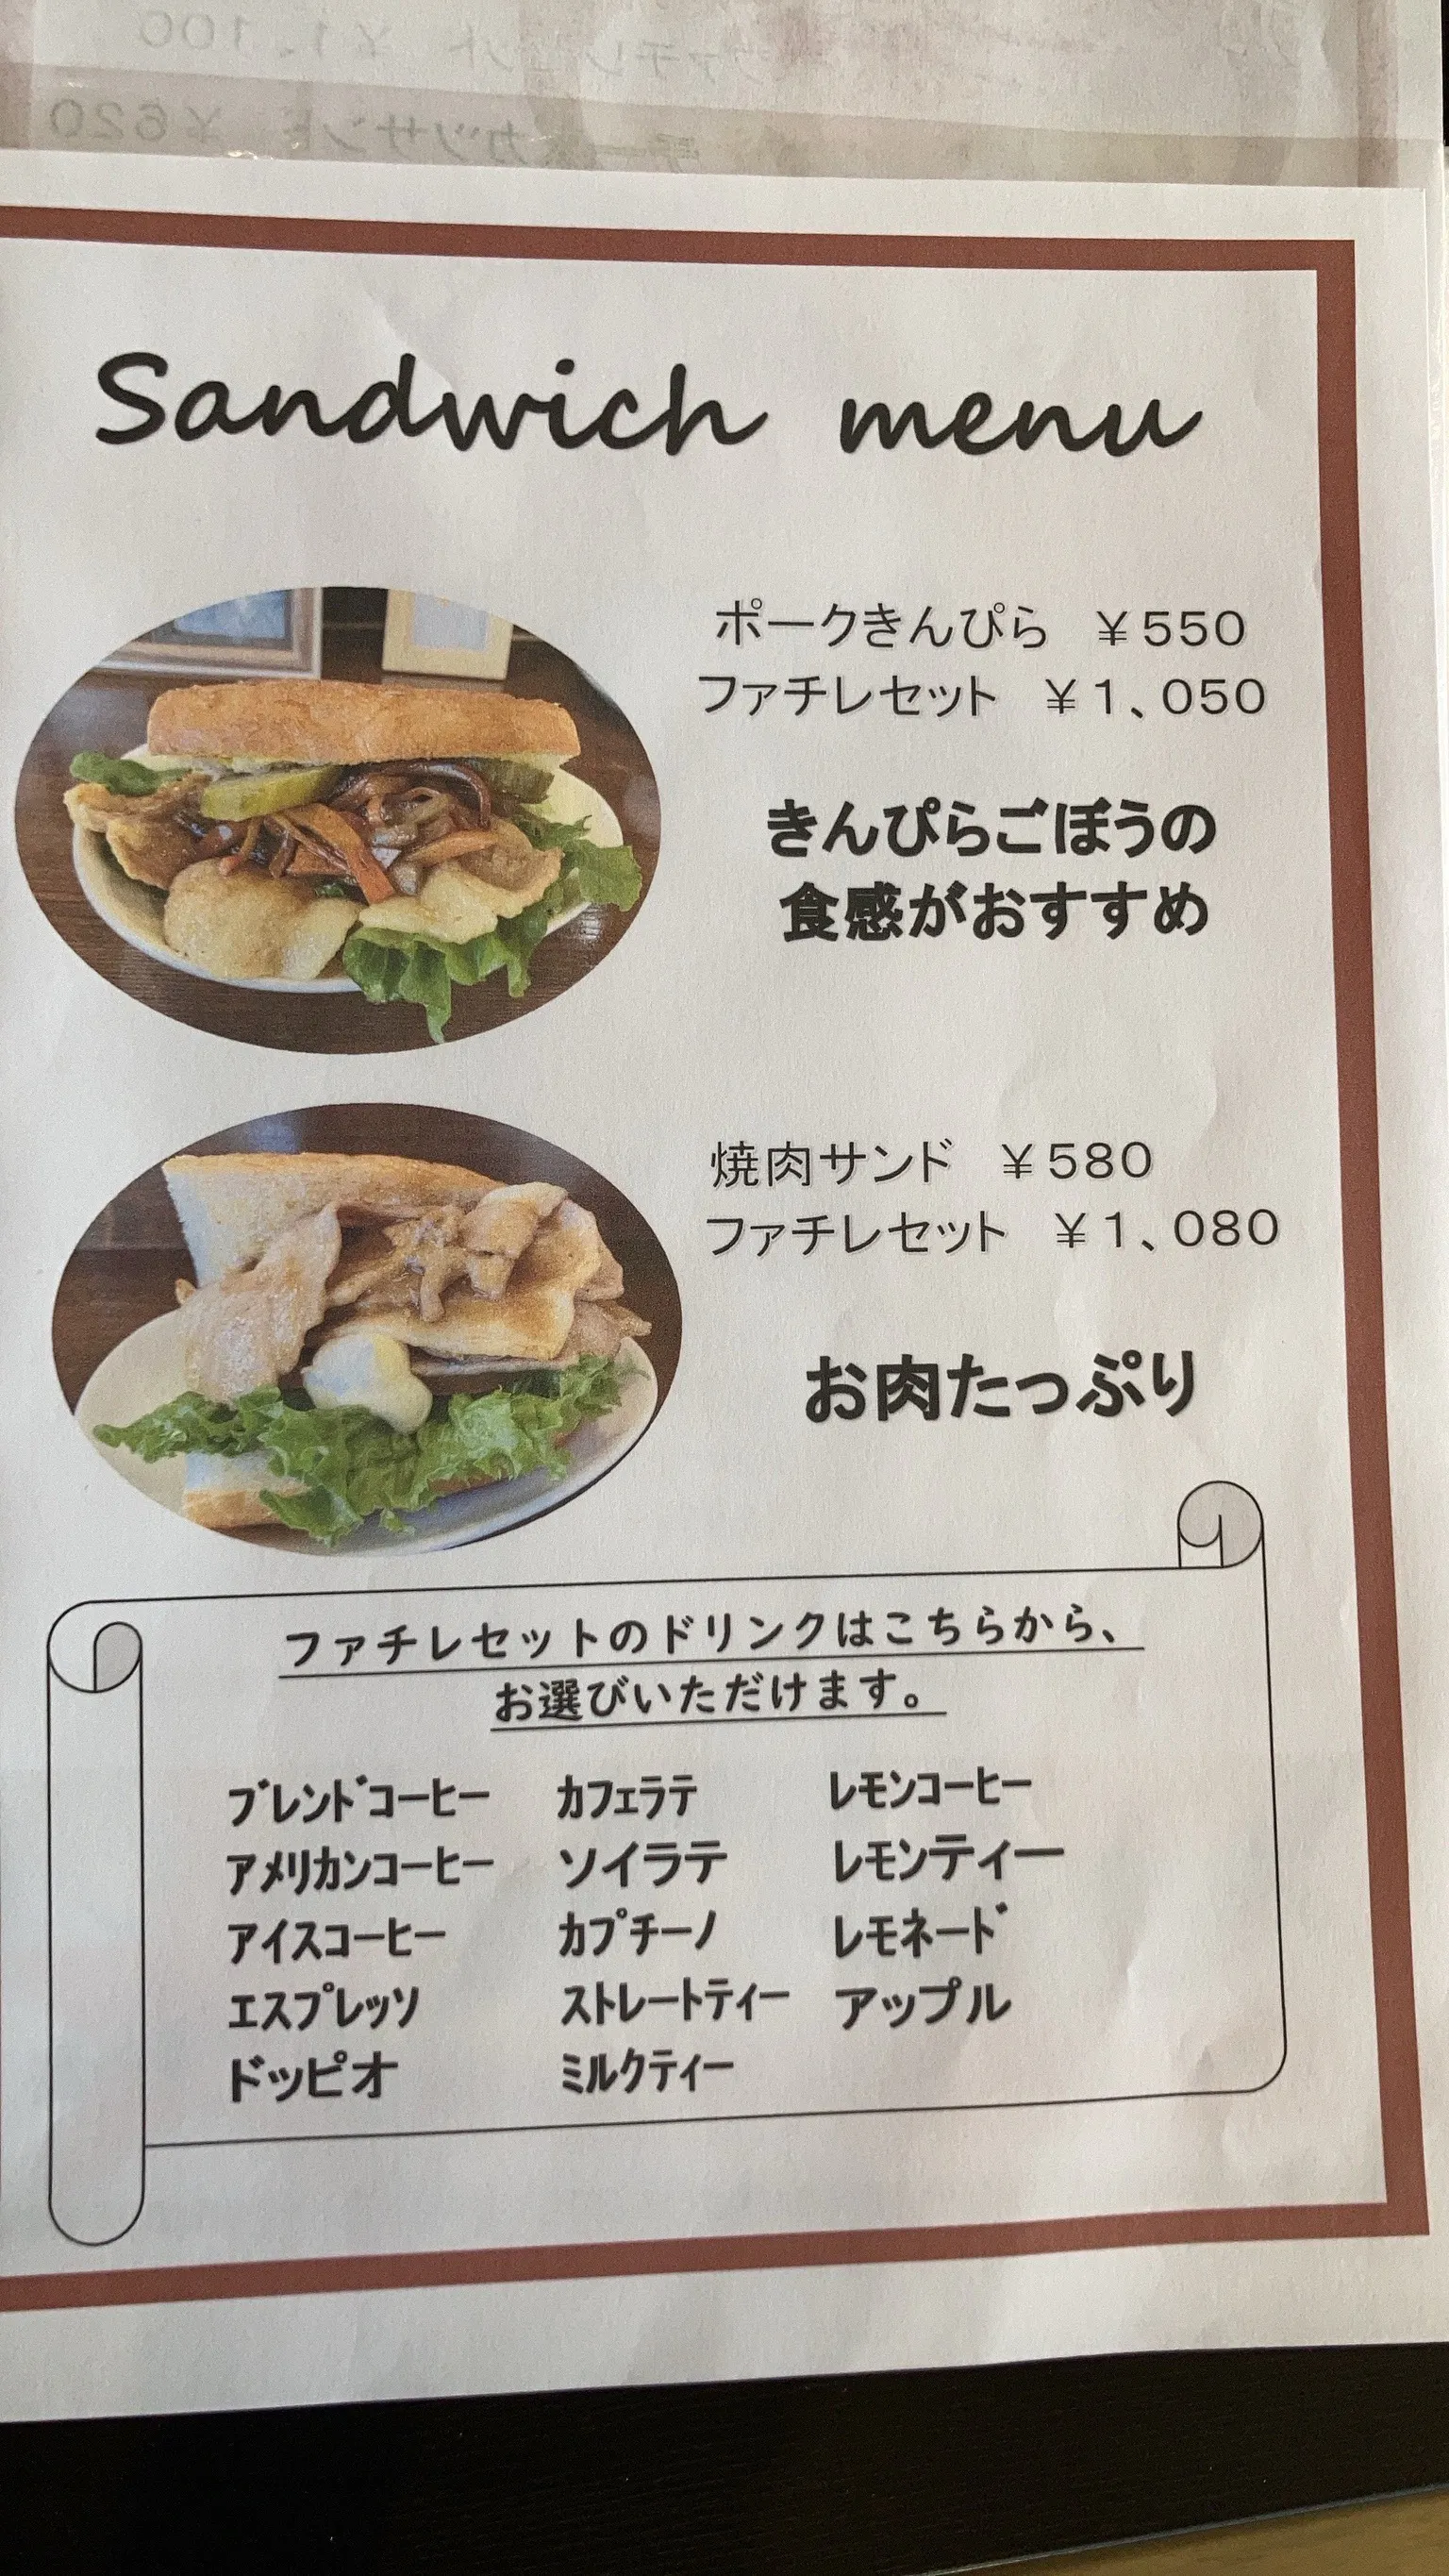 Sandwich menu
ポークきんぴら ￥550
ファチレセット ￥1、050
きんぴらごぼうの
食感がおすすめ
焼肉サンド ￥580
ファチレセット ￥1、080
お肉たっぷり
ファチレセットのドリンクはこちらから、
お選びいただけます。
ブレンドコーヒー カフェラテ レモンコーヒー
アメリカンコーヒー ソイラテ レモンティー
アイスコーヒー カプチーノ レモネード
エスプレッソ ストレートティー アップル
ドッピオ ミルクティー